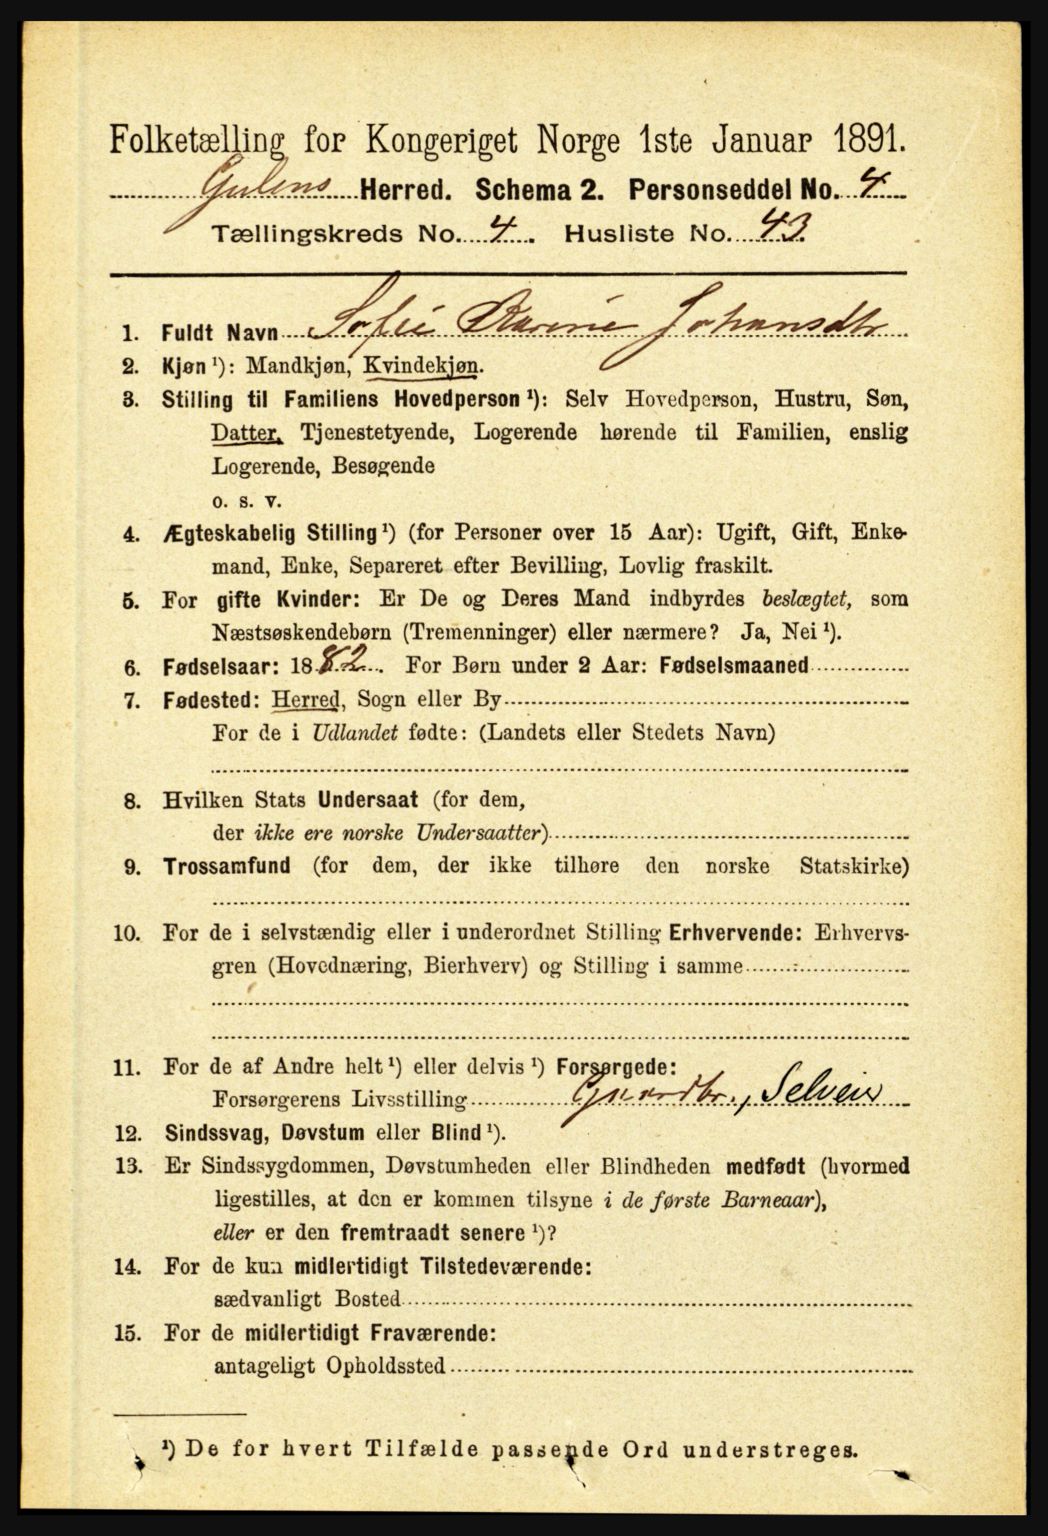 Folketælling for Kongeriget Norge 1ste Januar 1891.
Gulens Herred. Schema 2. Personseddel No. 4
Tællingskreds No. 4. Husliste No. 43
1. Fuldt Navn Sofie Karine Johansdtr
2. Kjøn ¹): Mandkjøn, Kvindekjøn.
3. Stilling til Familiens Hovedperson ¹): Selv Hovedperson, Hustru, Søn,
Datter, Tjenestetyende, Logerende hørende til Familien, enslig
Logerende, Besøgende
o. s. v.
4. Ægteskabelig Stilling ¹) (for Personer over 15 Aar): Ugift, Gift, Enke-
mand, Enke, Separeret efter Bevilling, Lovlig fraskilt.
5. For gifte Kvinder: Er De og Deres Mand indbyrdes beslægtet, som
Næstsøskendebørn (Tremenninger) eller nærmere? Ja, Nei ¹).
6. Fødselsaar: 1882. For Børn under 2 Aar: Fødselsmaaned
7. Fødested: Herred, Sogn eller By
For de i Udlandet fødte: (Landets eller Stedets Navn)
8. Hvilken Stats Undersaat (for dem,
der ikke ere norske Undersaatter)
9. Trossamfund (for dem, der ikke tilhøre den norske Statskirke)
10. For de i selvstændig eller i underordnet Stilling Erhvervende: Erhvervs-
gren (Hovednæring, Bierhverv) og Stilling i samme
11. For de af Andre helt ¹) eller delvis ¹) Forsørgede:
Forsørgerens Livsstilling Gaardbr., Selveier
12. Sindssvag, Døvstum eller Blind ¹).
13. Er Sindssygdommen, Døvstumheden eller Blindheden medfødt (hvormed
ligestilles, at den er kommen tilsyne i de første Barneaar),
eller er den fremtraadt senere ¹)?
14. For de kun midlertidigt Tilstedeværende:
sædvanligt Bosted
15. For de midlertidigt Fraværende:
antageligt Opholdssted
¹) De for hvert Tilfælde passende Ord understreges.